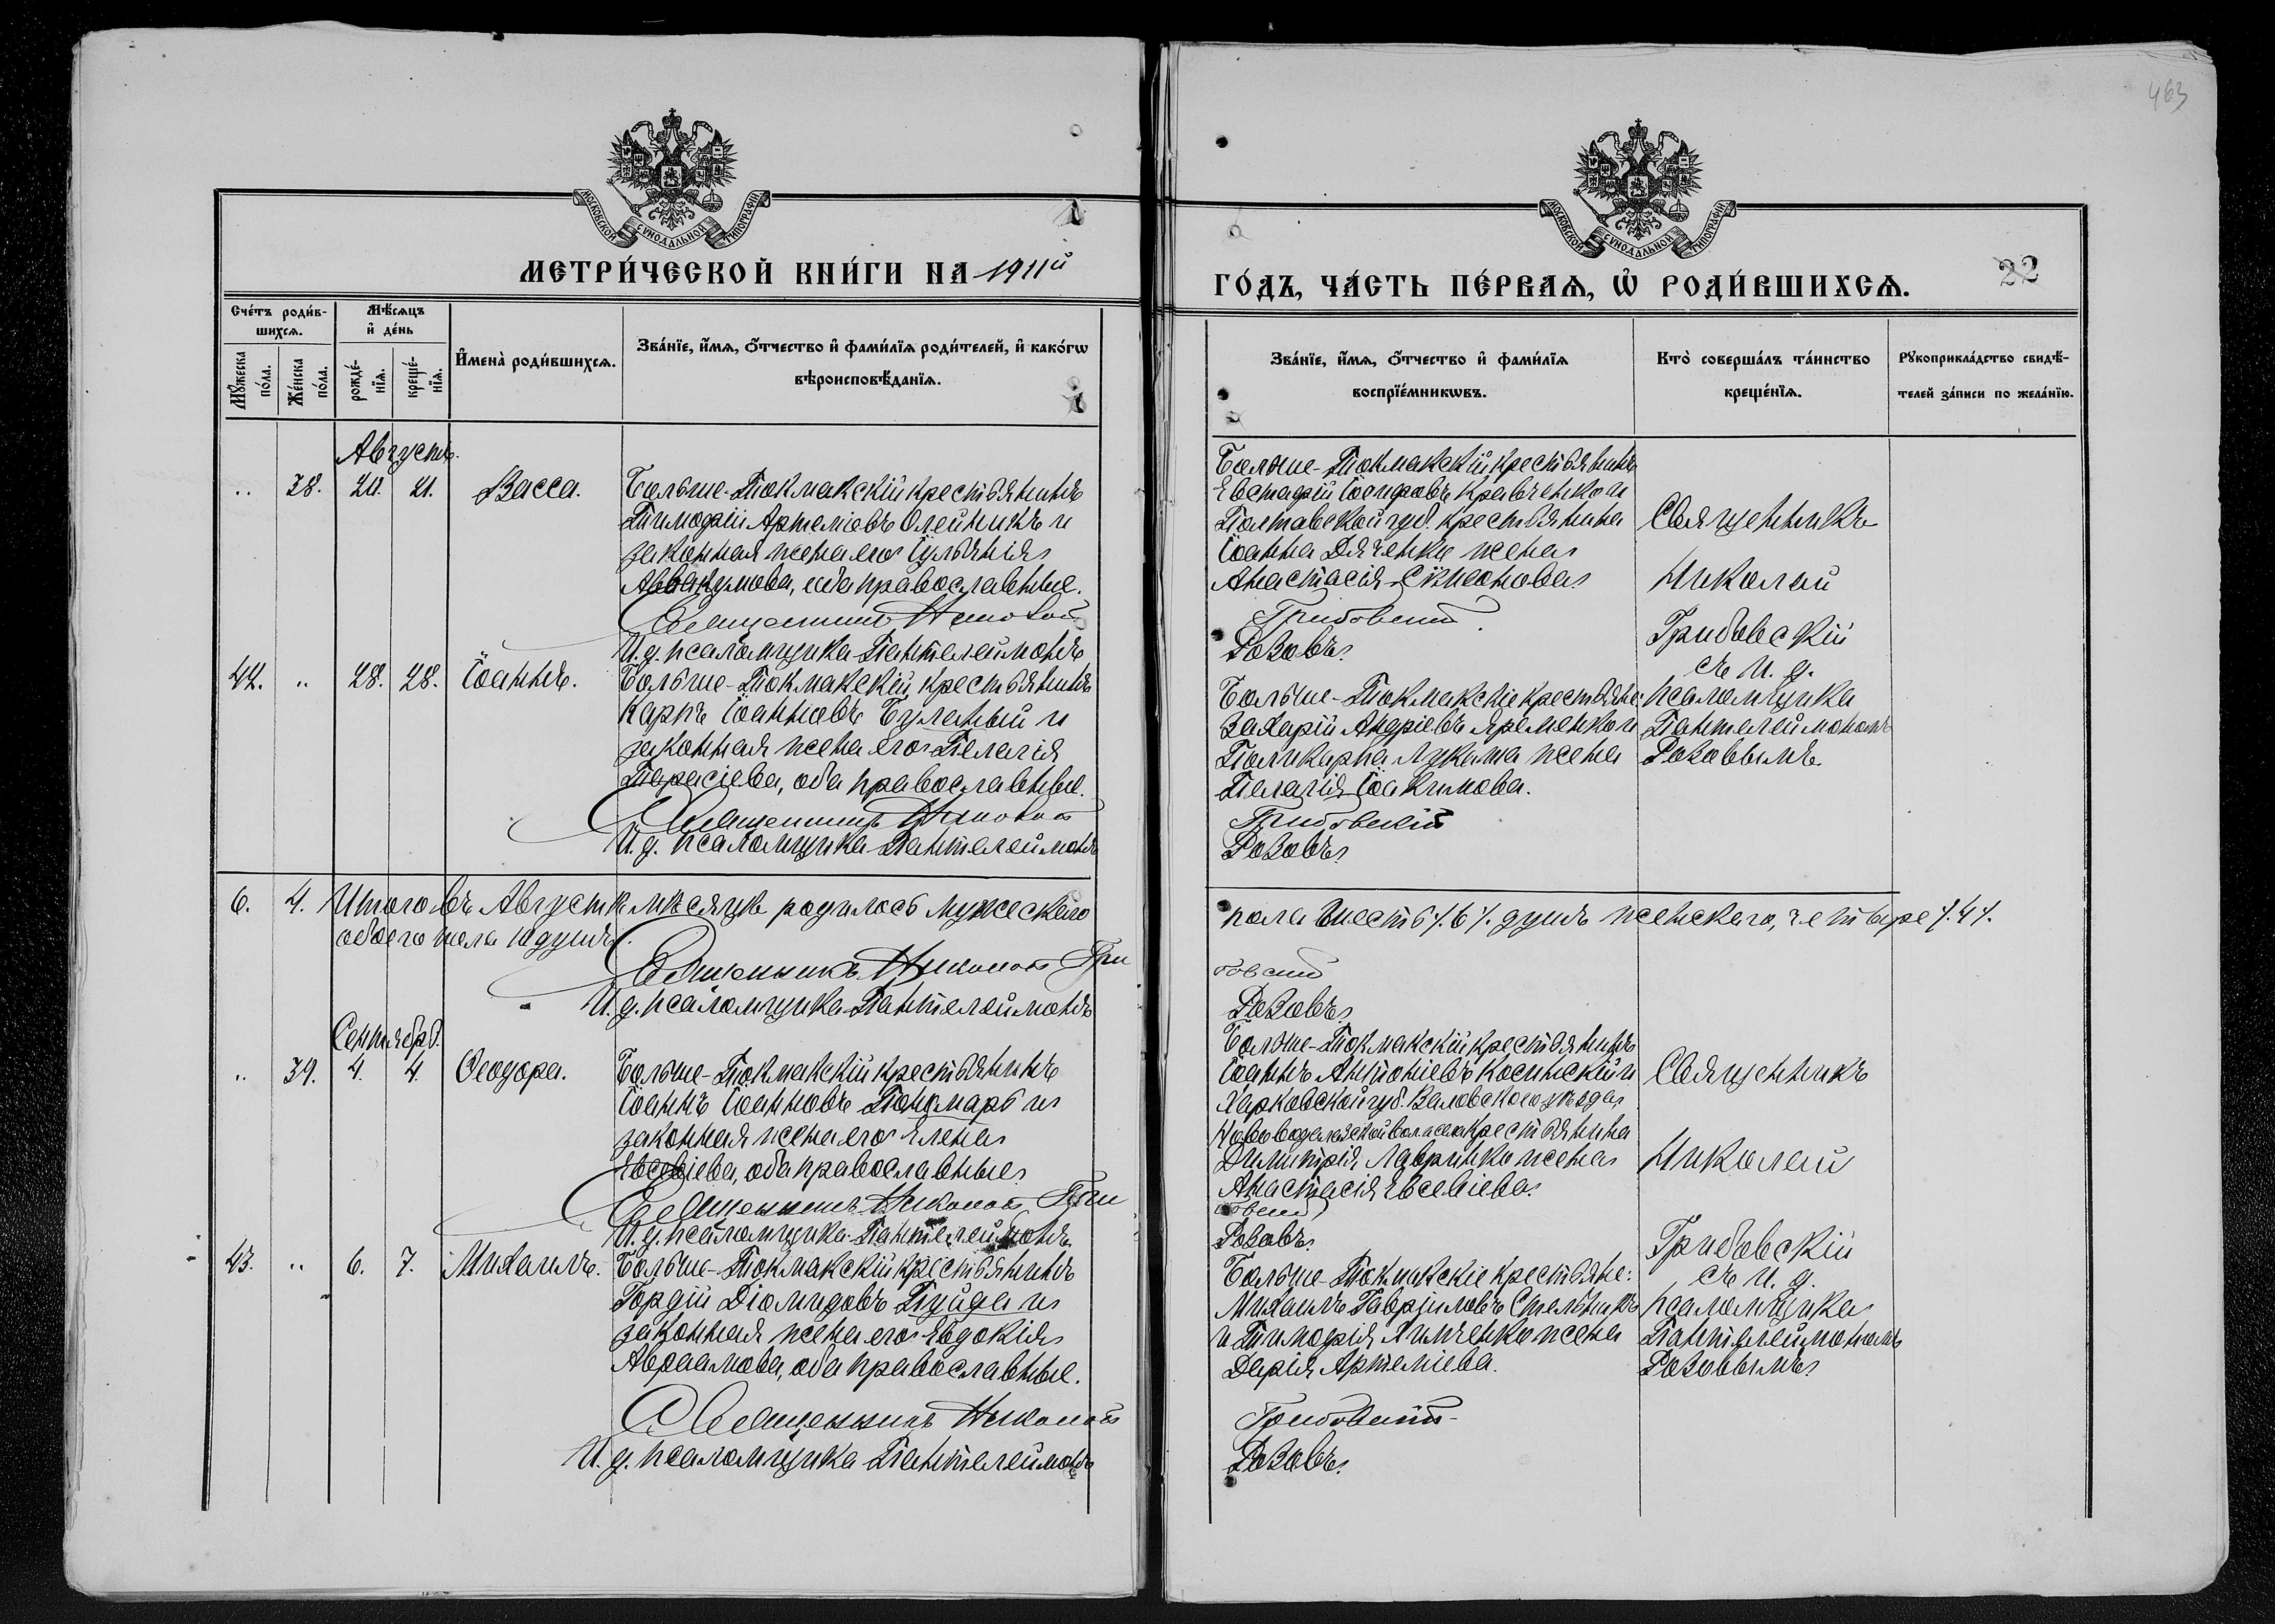 463
МОСКОВСКОЙ СѴНОДАЛЬНОЙ ТИПОГРАФІИ
МОСКОВСКОЙ СѴНОДАЛЬНОЙ ТИПОГРАФІИ
МЕТРИ́ЧЕСКОЙ КНИ́ГИ НА 1911й
ГО́ДЪ, ЧА́СТЬ ПЕ́РВАѦ, Ѡ҆ РОДИ́ВШИХСѦ.
22
Сче́тъ роди́в-
шихсѧ.
Мꙋ́жеска
по́ла.
Же́нска
по́ла.
Мѣ́сѧцъ
и҆ де́нь
рожде́-
нїѧ.
креще́-
нїѧ.
И҆мена̀ роди́вшихсѧ.
Зва́нїе, и҆́мѧ, ѻ҆́тчество и҆ фами́лїѧ роди́телей, и҆ како́гѡ
вѣроисповѣ́данїѧ.
Зва́нїе, и҆́мѧ, ѻ҆́тчество и҆ фами́лїѧ
воспрїе́мникѡвъ.
Кто̀ соверша́лъ та́инство
креще́нїѧ.
Рꙋкоприкла́дство свидѣ́-
телей за́писи по жела́нїю.
Августъ.
.. 38. 20. 21. Васса.
Больше-Токмакскій крестьянинъ
Тимофій Артеміевъ Олейникъ и
законная жена его Іуліанія
Аввакумова, оба православные.
Священникъ Николай
И. д. псаломщика Пантелеймонъ
Больше-Токмакскій крестьянинъ
Евстафій Іосифовъ Кравченко и
Полтавской губ. крестьянина
Іоанна Дяченко жена
Анастасія Сѵмеонова
Грибовскій
Розовъ.
Священникъ
Николай
Грибовскій
съ и. д.
псаломщика
Пантелеймономъ
Розовымъ.
42. .. 28. 28. Іоаннъ.
Больше-Токмакскій крестьянинъ
Карпъ Іоанновъ Буланый и
законная жена его Пелагія
Тарасіева, оба православные.
Священникъ Николай
И. д. псаломщика Пантелеймонъ
Больше-Токмакскіе крестьяне:
Захарій Андріевъ Яременко и
Поликарпа Лукаша жена
Пелагія Іоакимова.
Грибовскій
Розовъ.
6. 4. Итого въ Августѣ мѣсяцѣ родилось мужескаго
пола шесть /.6/. душъ женскаго, четыре /.4/.
обоего пола 10 душъ.
Священникъ Николай Гри
бовскій
И. д. псаломщика Пантелеймонъ
Розовъ.
Сентябрь.
.. 39. 4. 4. Ѳеодора.
Больше-Токмакскій крестьянинъ
Іоаннъ Іоанновъ Пономарь и
законная жена его Елена
Евсевіева, оба православные
Священникъ Николай Гри
И. д. псаломщика Пантелеймонъ
Больше-Токмакскій крестьянинъ
Іоаннъ Антоніевъ Косинскій и
Харковской губ. Валковскаго уѣзда
крестьянина
Димитрія Лавринко жена
Анастасія Евсевіева.
бовскій
Розовъ.
Священникъ
Николай
Грибовскій
съ и. д.
псаломщика
Пантелеймономъ
Розовымъ
43. .. 6. 7. Михаилъ.
Больше-Токмакскій крестьянинъ
Гордій Діомидовъ Пуйда и
законная жена его Евдокія
Авраамова, оба православные.
Священникъ Николай
И. д. псаломщика Пантелеймонъ
Больше-Токмакскіе крестьяне:
Михаилъ Гавріиловъ Стальникъ
и Тимофія Линченко жена
Дарія Артеміева.
Грибовскій
Розовъ.